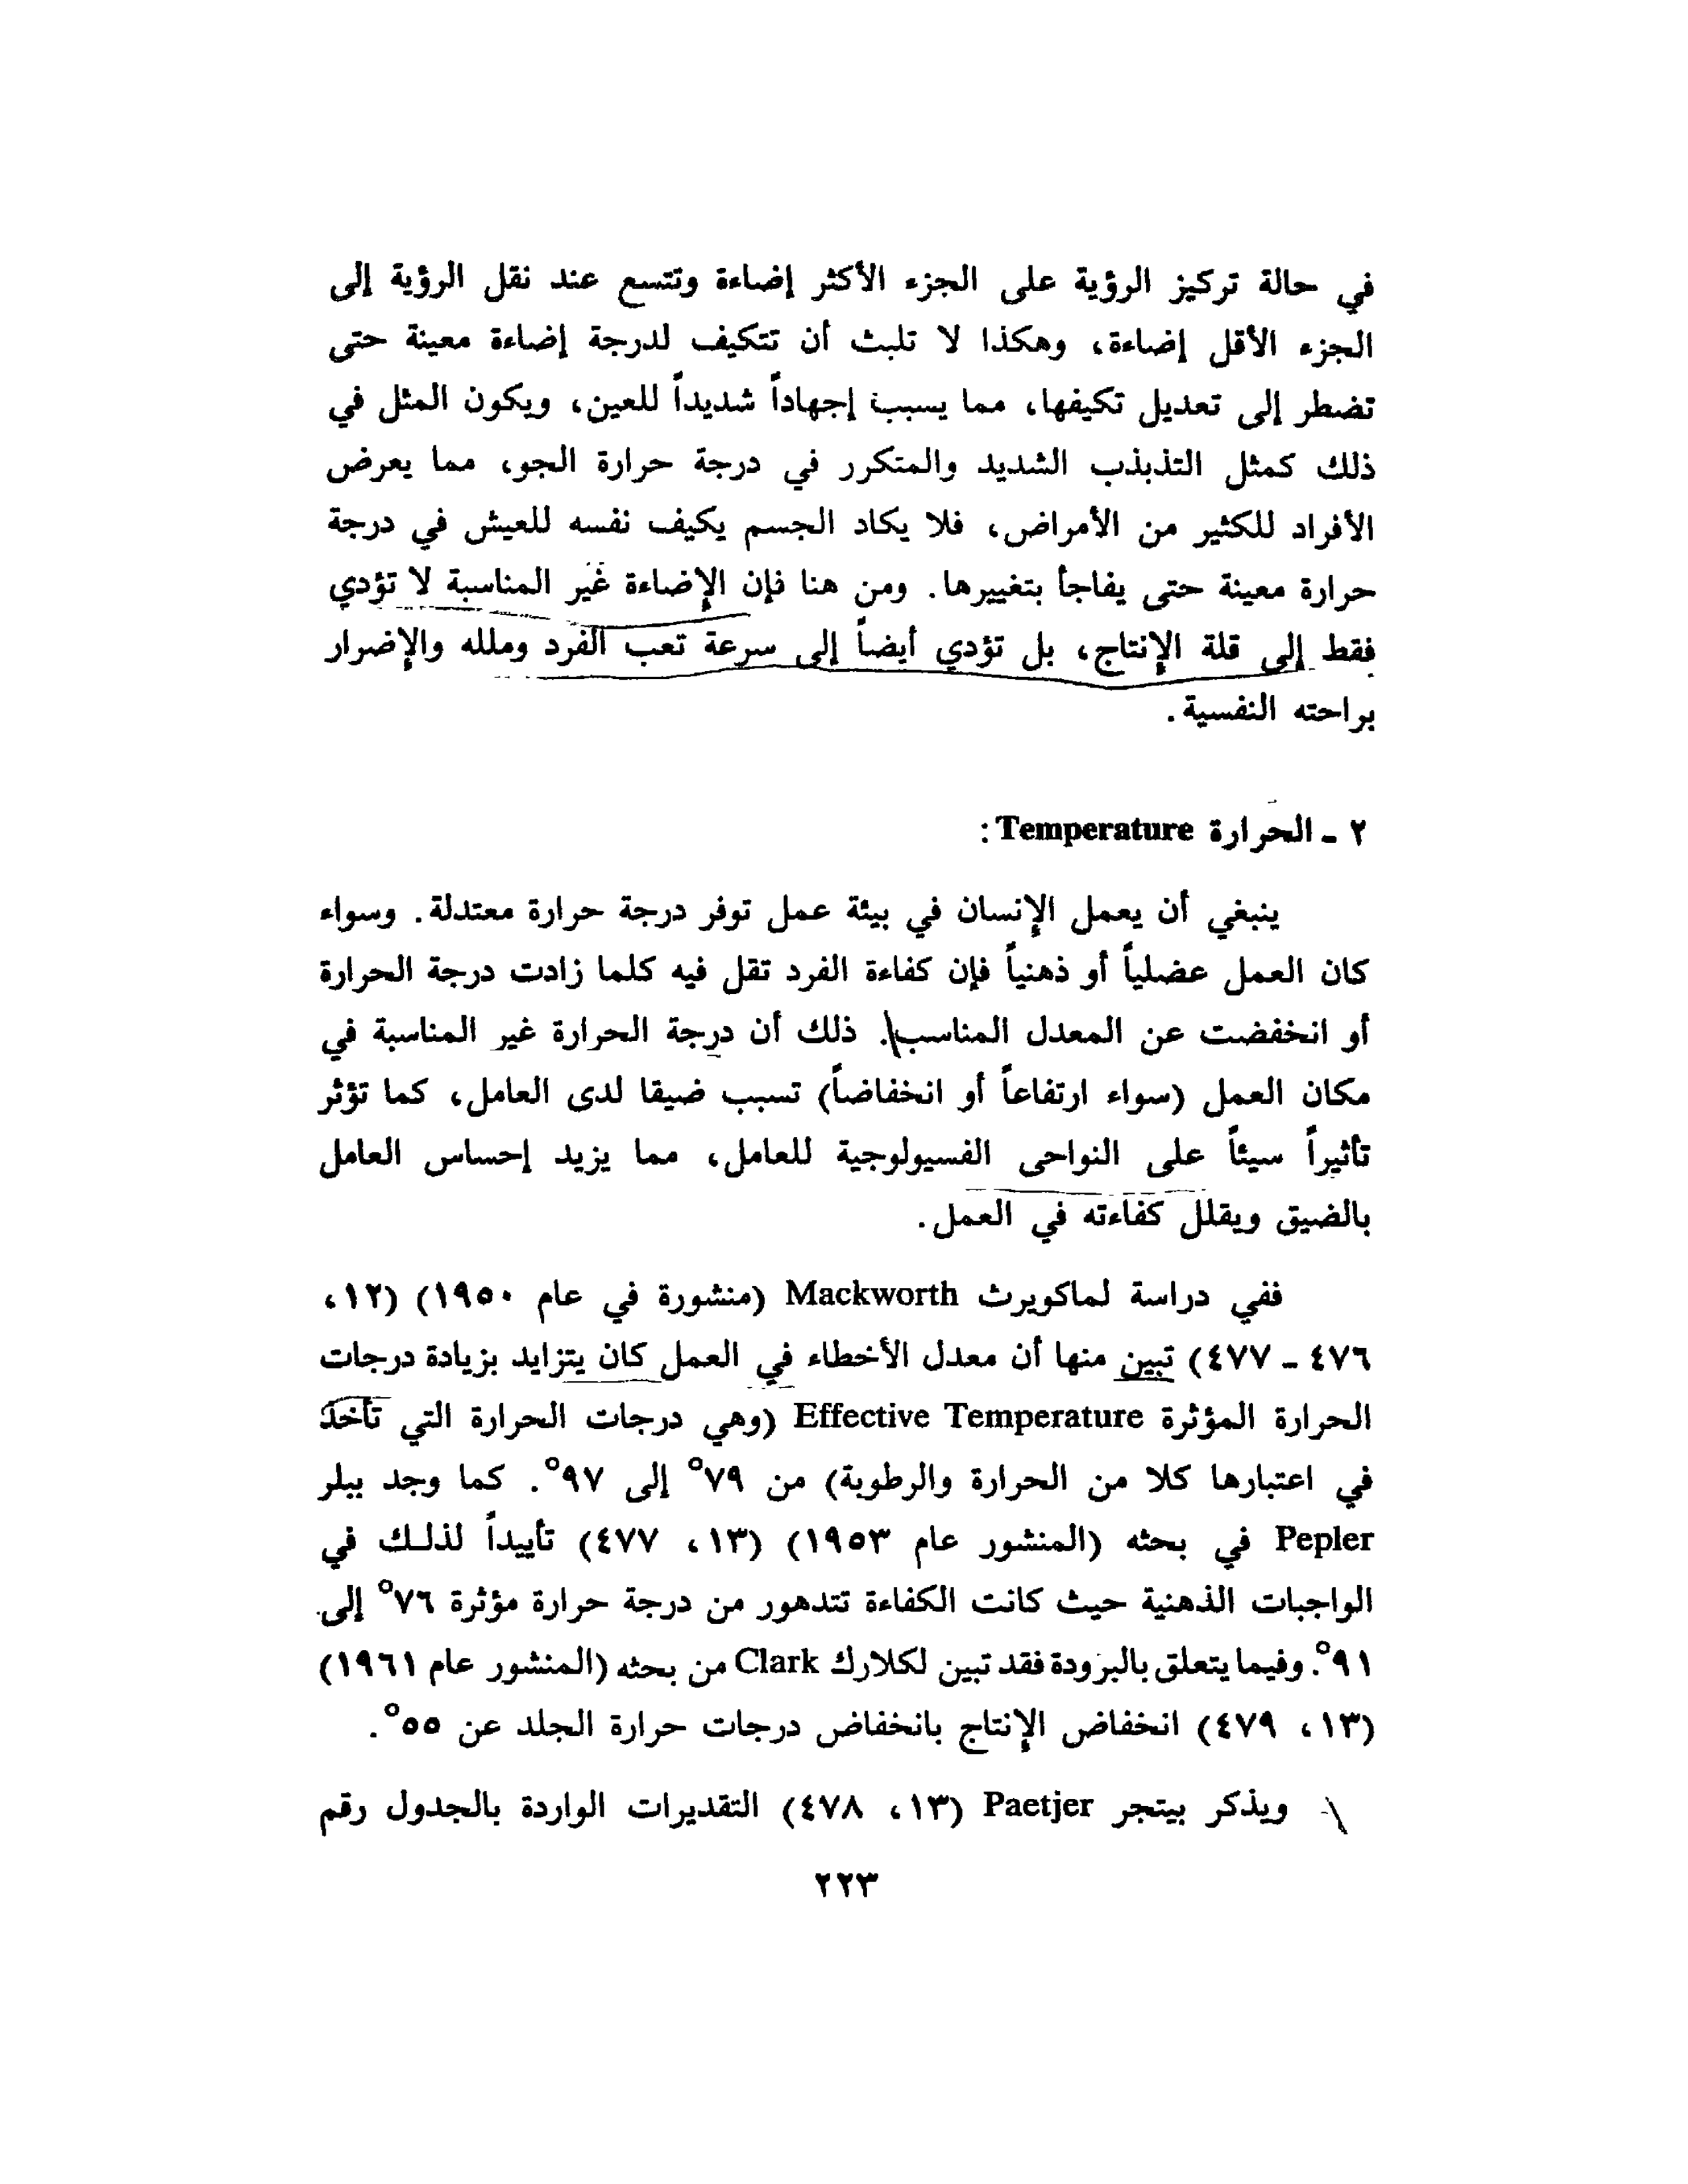 في حالة تركيز الرؤية على الجزء الأكثر إضاءة وتتسع عند نقل الرؤية إلى
الجزء الأقل إضاءة، وهكذا لا تلبث أن تتكيف لدرجة إضاءة معينة حتى
تضطر إلى تعديل تكيفها، مما يسبب إجهاداً شديداً للعين، ويكون المثل في
ذلك كمثل التذبذب الشديد والمتكرر في درجة حرارة الجو، مما يعرض
الأفراد للكثير من الأمراض، فلا يكاد الجسم يكيف نفسه للعيش في درجة
حرارة معينة حتى يفاجأ بتغييرها. ومن هنا فإن الإضاءة غير المناسبة لا تؤدي
فقط إلى قلة الإنتاج، بل تؤدي أيضاً إلى سرعة تعب الفرد وملله والإضرار
براحته النفسية.
٢ - الحرارة Temperature:
ينبغي أن يعمل الإنسان في بيئة عمل توفر درجة حرارة معتدلة. وسواء
كان العمل عضلياً أو ذهنياً فإن كفاءة الفرد تقل فيه كلما زادت درجة الحرارة
أو انخفضت عن المعدل المناسب. ذلك أن درجة الحرارة غير المناسبة في
مكان العمل (سواء ارتفاعاً أو انخفاضاً) تسبب ضيقا لدى العامل، كما تؤثر
تأثيراً سيئاً على النواحى الفسيولوجية للعامل، مما يزيد إحساس العامل
بالضيق ويقلل كفاءته في العمل.
ففي دراسة لماكويرث Mackworth (منشورة في عام ١٩٥٠) (١٢،
٤٧٦ - ٤٧٧) تبين منها أن معدل الأخطاء في العمل كان يتزايد بزيادة درجات
الحرارة المؤثرة Effective Temperature (وهي درجات الحرارة التي تأخذ
في اعتبارها كلا من الحرارة والرطوبة) من ٧٩° إلى ٩٧°. كما وجد ببلر
Pepler في بحثه (المنشور عام ١٩٥٣) (١٣، ٤٧٧) تأييداً لذلك في
الواجبات الذهنية حيث كانت الكفاءة تتدهور من درجة حرارة مؤثرة ٧٦° إلى
٩١°. وفيما يتعلق بالبرودة فقد تبين لكلارك Clark من بحثه (المنشور عام ١٩٦١)
(١٣، ٤٧٩) انخفاض الإنتاج بانخفاض درجات حرارة الجلد عن ٥٥°.
ويذكر بيتجر Paetjer (١٣، ٤٧٨) التقديرات الواردة بالجدول رقم
٢٢٣